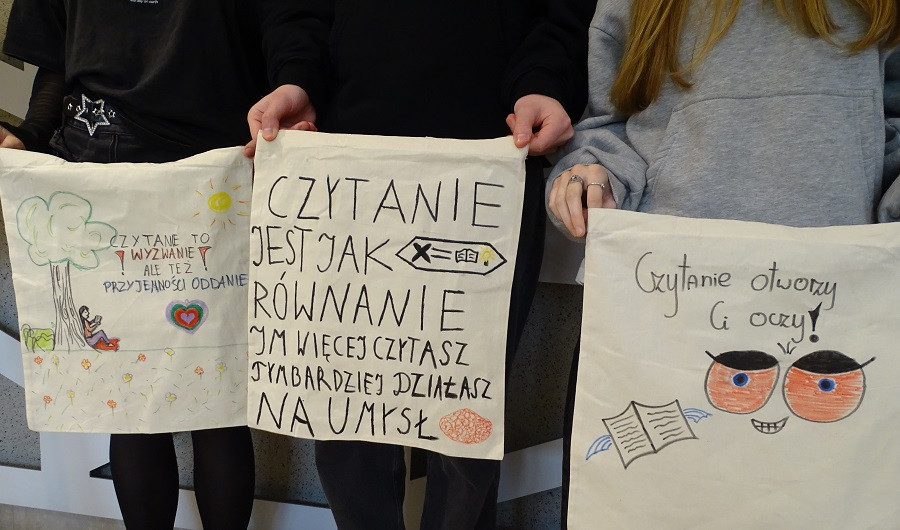 CZYTANE TO
! WYZWANIE !
ALE TEŻ
PRZYJEMNOŚCI ODDANIE
CZYTANIE
JEST JAK X=
RÓWNANIE
IM WIĘCEJ CZYTASZ
TYMBARDZIEJ DZIAŁASZ
NA UMYSŁ
Czytanie otworzy
Ci oczy!